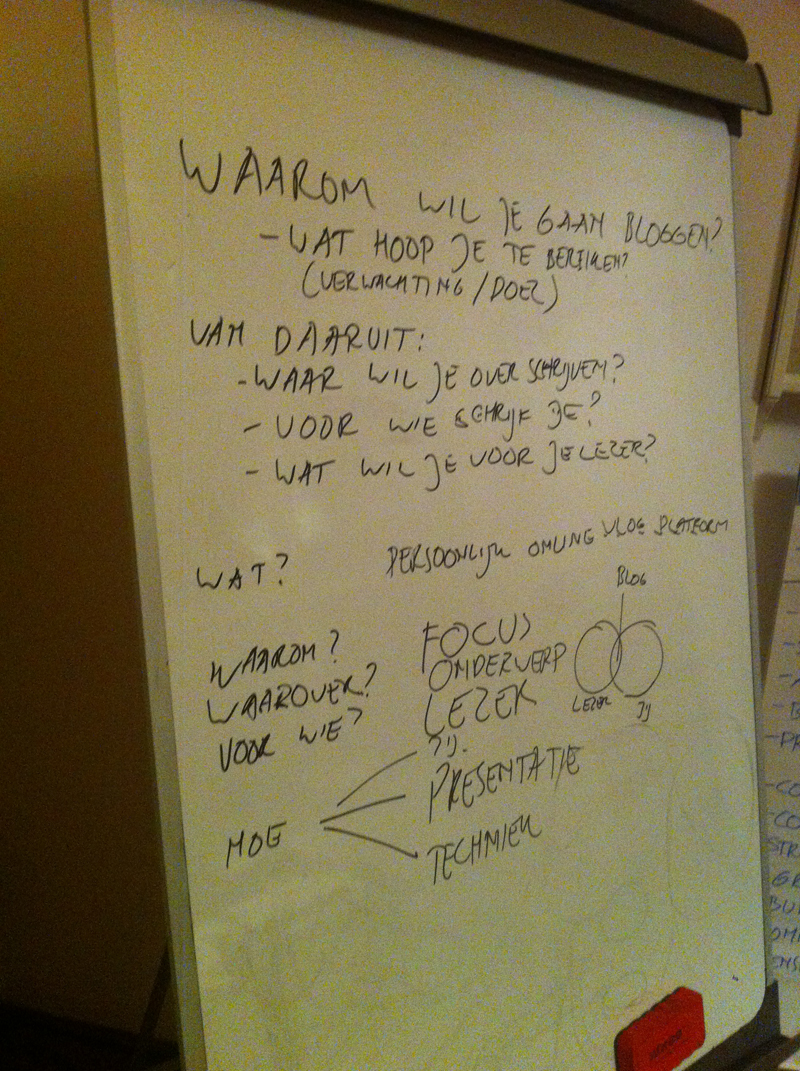 WAAROM WIL JE GAAN BLOGGEN?
- WAT HOOP JE TE BEREIKEN?
(VERWACHTING / DOEL)
VAN DAARUIT:
- WAAR WIL JE OVER SCHRIJVEN?
- VOOR WIE SCHRIJF JE?
- WAT WIL JE VOOR JE LEZER?
WAT? PERSOONLIJK VLOG PLATFORM
BLOG
WAAROM? FOCUS
WAAROVER? ONDERWERP
VOOR WIE? LEZER
LEZER JIJ
JIJ.
PRESENTATIE
HOE
TECHNIEK